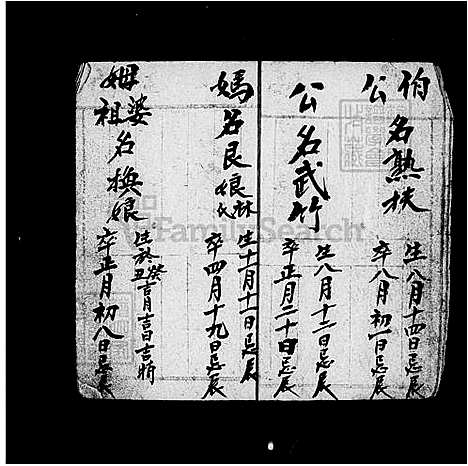 伯公名熟枝
生八月十四日忌辰
卒八月初一日忌辰
公名武竹
生八月十二日忌辰
卒正月二十日忌辰
媽名艮娘林氏
生十一月十一日忌辰
卒四月十九日忌辰
婆
祖
名換娘
生於癸丑吉月吉日吉時
卒正月初八日忌辰
FamilySearch